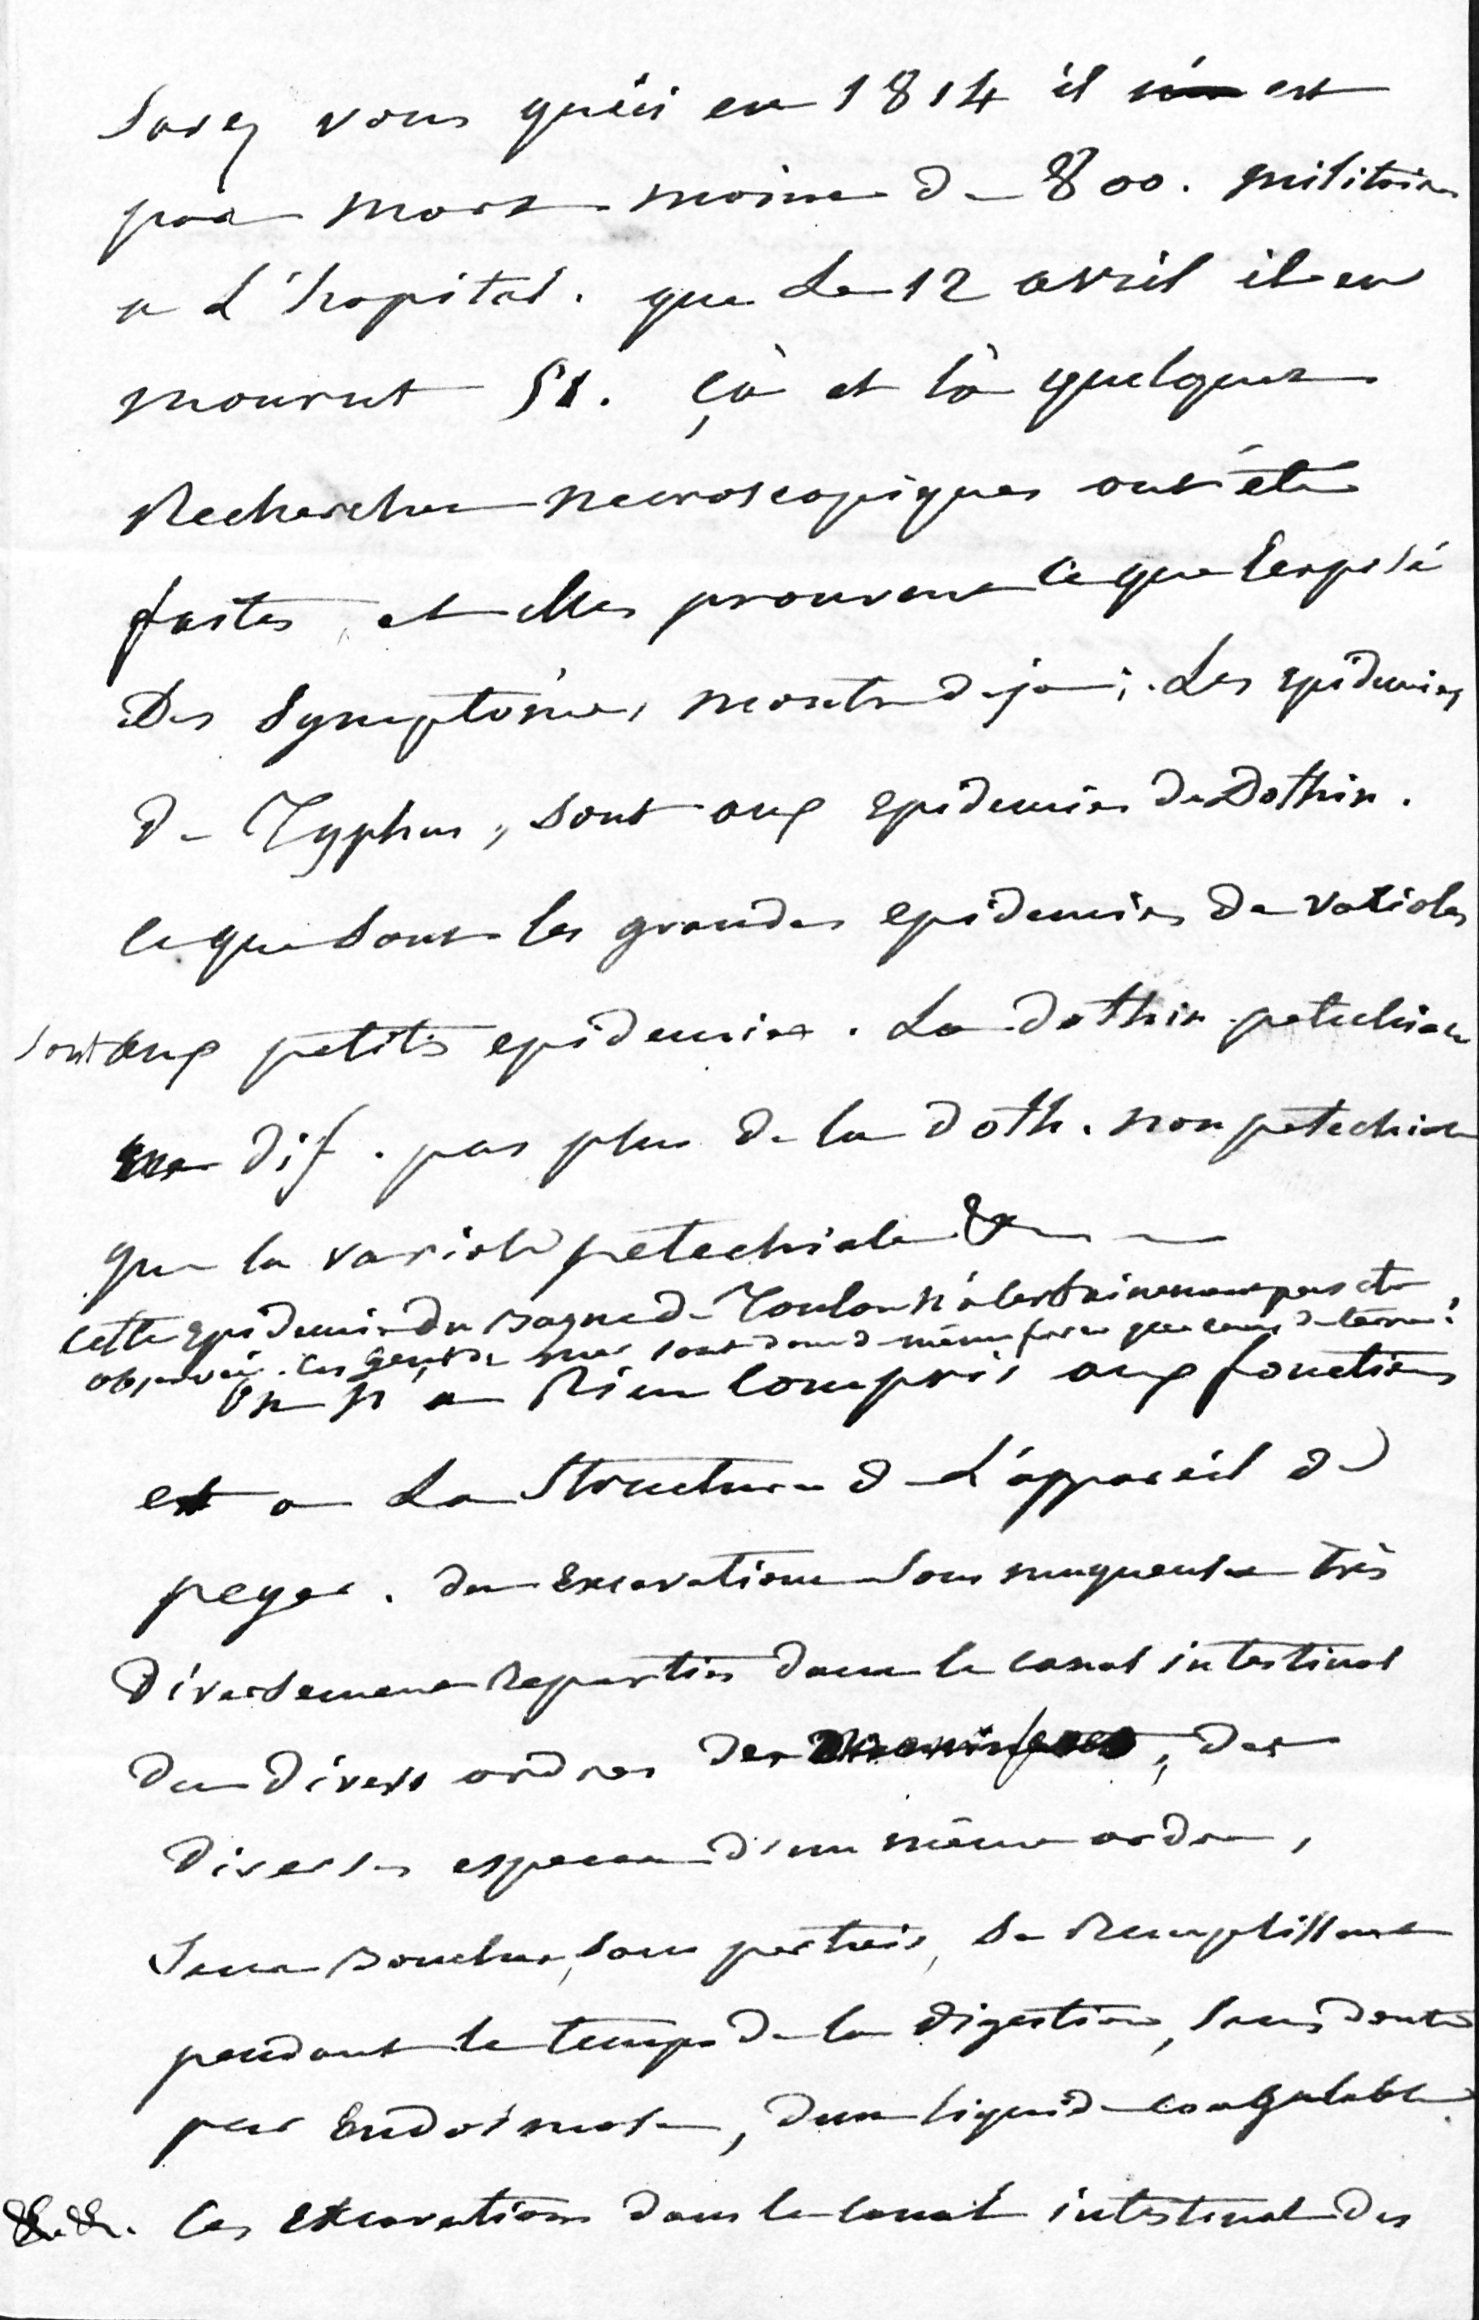 Savez vous qu'ici en 1814 il n'en est
pas mort moins de 800. militaires
a L'hopital. que Le 12 avril il en
mourut 51. çà et là quelques
Recherches necroscopiques ont été
faites, et elles prouvent ce que L'exposé
Des Symptômes, montre deja; Les epidemies
de Typhus, sont aux epidemies De Dothin.
ce que sont les grandes epidemies De varioles
sont aux petites epidemies. La Dothin. petechiale
ne dif. pas plus de la doth. non petechiale
que la variole petechiale &
cette epidemie Du bagne de Toulon n'a certainement pas été
observée. Ces gens de mer sont donc de même force que ceux de terre!
On n'a Rien compris aux fonctions
et a La Structure de L'appareil de
peyer. des Excavations Sous muqueuses très
Diversement Reparties dans le canal intestinal
des divers ordres des , des
diverses especes d'un même ordre,
Sans bouche, sans pertuis, se Remplissant
pendant le temps de la digestion, sans doute
par Endosmose, d'un liquide coagulable
&.&. Ces excavations dans le canal intestinal des